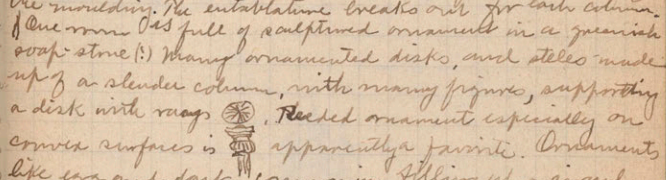 the moulding. The entablature breaks out for each column.
One room is full of sculptured ornament in a greenish
soap-stone (?) many ornamented disks, and steles made
up of a slender column, with many figures, supporting
a disk with rays . Reeded ornament especially on
convex surfaces is apparently a favorite. Ornaments
like egg and dart